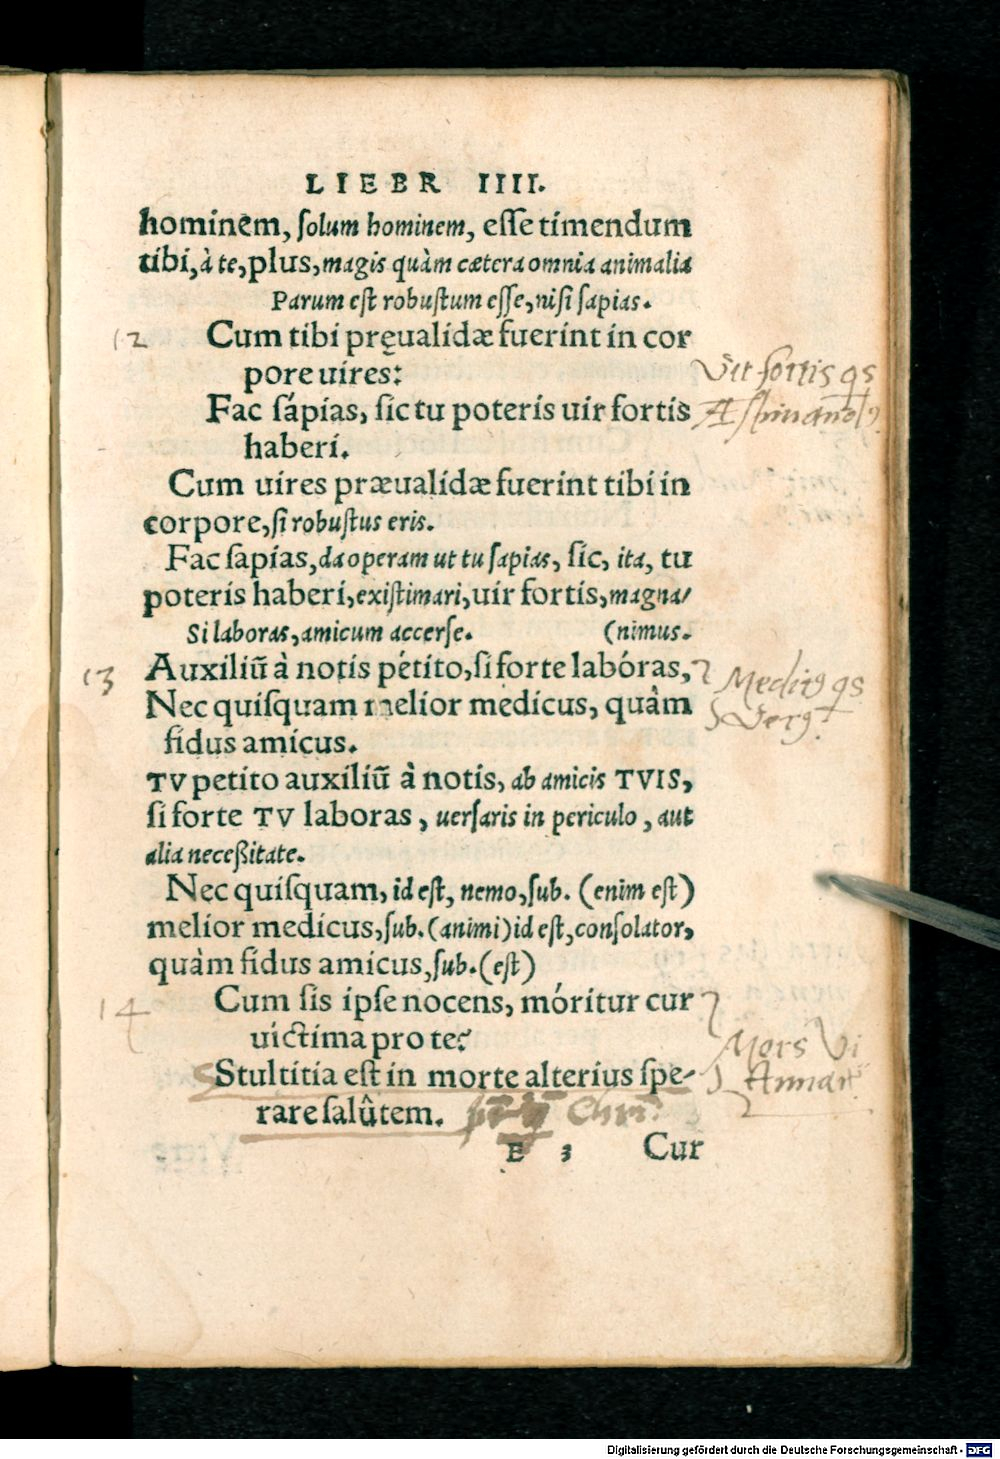 LIEBR IIII.
hominem, solum hominem, esse timendum
tibi, à te, plus, magis quàm cætera omnia animalia
Parum est robustum esse, nisi sapias.
12 Cum tibi pręualidæ fuerint in cor
pore uires:
Vir fortis qs
Fac sápias, sic tu poteris uir fortis
haberi.
Cum uires præualidæ fuerint tibi in
corpore, si robustus eris.
Fac sapias, da operam ut tu sapias, sic, ita, tu
poteris haberi, existimari, uir fortis, magna/
Si laboras, amicum accerse. (nimus.
13 Auxiliũ à notis pétito, si forte labóras,
Nec quisquam melior medicus, quàm
fidus amicus.
TV petito auxiliũ à notis, ab amicis TVIS,
si forte TV laboras, uersaris in periculo, aut
alia neceßitate.
Nec quisquam, id est, nemo, sub. (enim est)
melior medicus, sub. (animi) id est, consolator,
quàm fidus amicus, sub. (est)
14 Cum sis ipse nocens, móritur cur
uictima pro te?
Mors Vi
Stultitia est in morte alterius spe-
rare salûtem.
E 3 Cur
Digitalisierung gefördert durch die Deutsche Forschungsgemeinschaft - DFG